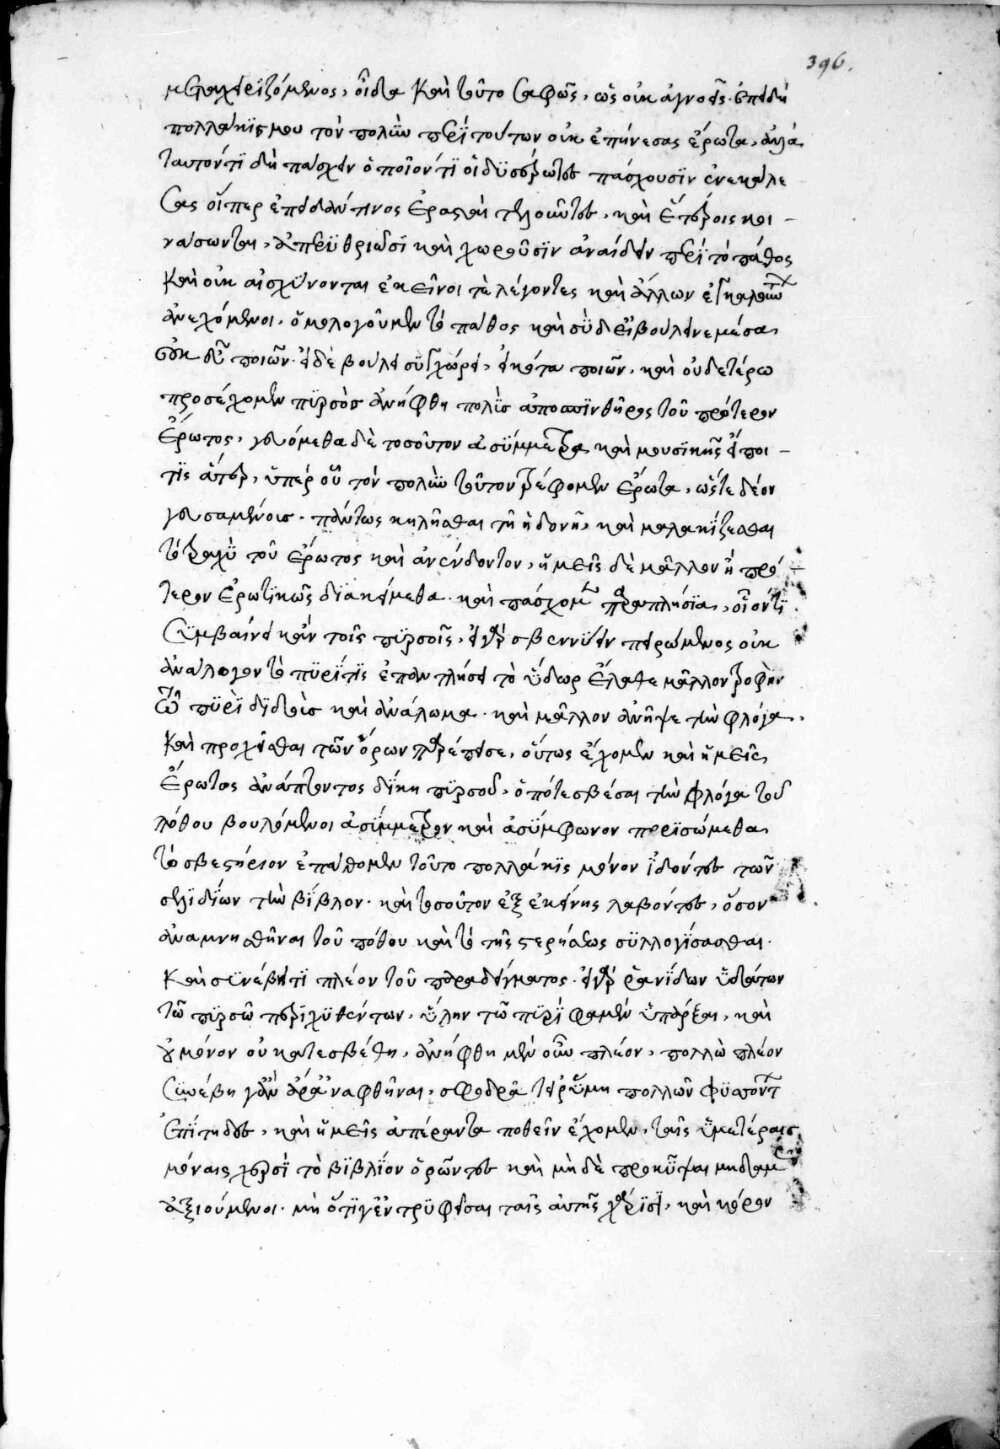 396.
μεταχειριζόμενος, οἶδα καὶ τοῦτο σαφῶς, ὡς οὐκ ἀγνοεῖς. ἐπειδὴ
πολλάκις μου τὸν πολὺν περὶ τούτων οὐκ ἐπήνεσας ἔρωτα, ἀλλὰ
ταυτόν τι δὴ πάσχειν ὁποῖόν τι οἱ δυσέρωτες πάσχουσιν ἐνεκάλε
σας οἵπερ ἐπειδάν τινος ἐρασταὶ τελοῦντες, καὶ ἑτέροις κοι-
νάσωνται, ἀπερυθριῶσι καὶ χωροῦσιν ἀναίδην περὶ τὸ πάθος
καὶ οὐκ αἰσχύνονται ἐκεῖνοί τε λέγοντες καὶ ἄλλων ἐγκαλούντων
ἀνεχόμενοι, ὁμολογοῦμεν τὸ πάθος καὶ σὺ δ' εἰ βούλει νεμέσα
οὐκ εὖ ποιῶν. εἰ δὲ βούλει συγχώρει, εἰκότα ποιῶν, καὶ οὐδετέρω
προσέχομεν πυρσὸς ἀνήφθη πολὺς ἀπὸ σπινθῆρος τοῦ πρότερον
ἔρωτος, γενόμεθα δὲ τοσοῦτον ἀσύμμετρα καὶ μουσικῆς εἴποι-
τις ἄτερ, ὑπὲρ οὗ τὸν πολὺν τοῦτον τρέφομεν ἔρωτα, ὥστε δέον
γευσαμένοις. πάντως κηλῆσθαι τῇ ἡδονῇ, καὶ μαλακίζεσθαι
τὸ τραχὺ τοῦ ἔρωτος καὶ ἀνένδοτον, ἡμεῖς δὲ μᾶλλον ἢ πρό-
τερον ἐρωτικῶς διακείμεθα. καὶ πάσχομεν παραπλήσια, οἷόν τι
συμβαίνει κἂν τοῖς πυρσοῖς, εἰ γὰρ σβεννύειν πειρώμενος οὐκ
ἀνάλογον τὸ πυρί τις ἐπαντλήσει τὸ ὕδωρ ἔλαθε μᾶλλον τροφὴν
τῷ πυρὶ διδοὺς καὶ ἀνάλωμα. καὶ μᾶλλον ἀνῆψε τὴν φλόγα,
καὶ προχεῖσθαι τῶν ὅρων παρέπεισε, οὕτως ἔχομεν καὶ ἡμεῖς
ἔρωτος ἀνάπτοντος δίκη πυρσοῦ, ὁπότε σβέσαι τὴν φλόγα τοῦ
πόθου βουλόμενοι ἀσύμμετρον καὶ ἀσύμφωνον πορισώμεθα
τὸ σβεστήριον ἐπάθομεν τοῦτο πολλάκις μόνον ἰδόντες τῶν
σελίδων τὴν βίβλον. καὶ τοσοῦτον ἐξ ἐκείνης λαβόντες, ὅσον
ἀναμνησθῆναι τοῦ πόθου καὶ τὸ τῆς στερήσεως συλλογίσασθαι.
καὶ συνέβη τι πλέον τοῦ παραδείγματος. εἰ γὰρ ῥανίδων ὑδάτων
τῷ πυρσῷ περιχυθέντων, ὕλην τῷ πυρὶ φαμὲν ὑπάρξαι, καὶ
οὐ μόνον οὐ κατεσβέσθη, ἀνήφθη μὲν οὖν πλέον, πολλῷ πλέον
συνέβη γοῦν ἄρα ἀναφθῆναι, σφοδρᾷ τε ῥύμη πολλῶν φυσώντων
ἐπίτηδες, καὶ ἡμεῖς ἀπέραντα ποθεῖν ἔχομεν, ταῖς ὑμετέραις
μόναις χερσὶ τὸ βιβλίον ὁρῶντες καὶ μὴ δὲ προκύψαι μηδαμῶς
ἀξιούμενοι. μὴ ὅτι γε ἐντρυφῆσαι ταῖς αὐτῆς χάρισι, καὶ κόρον